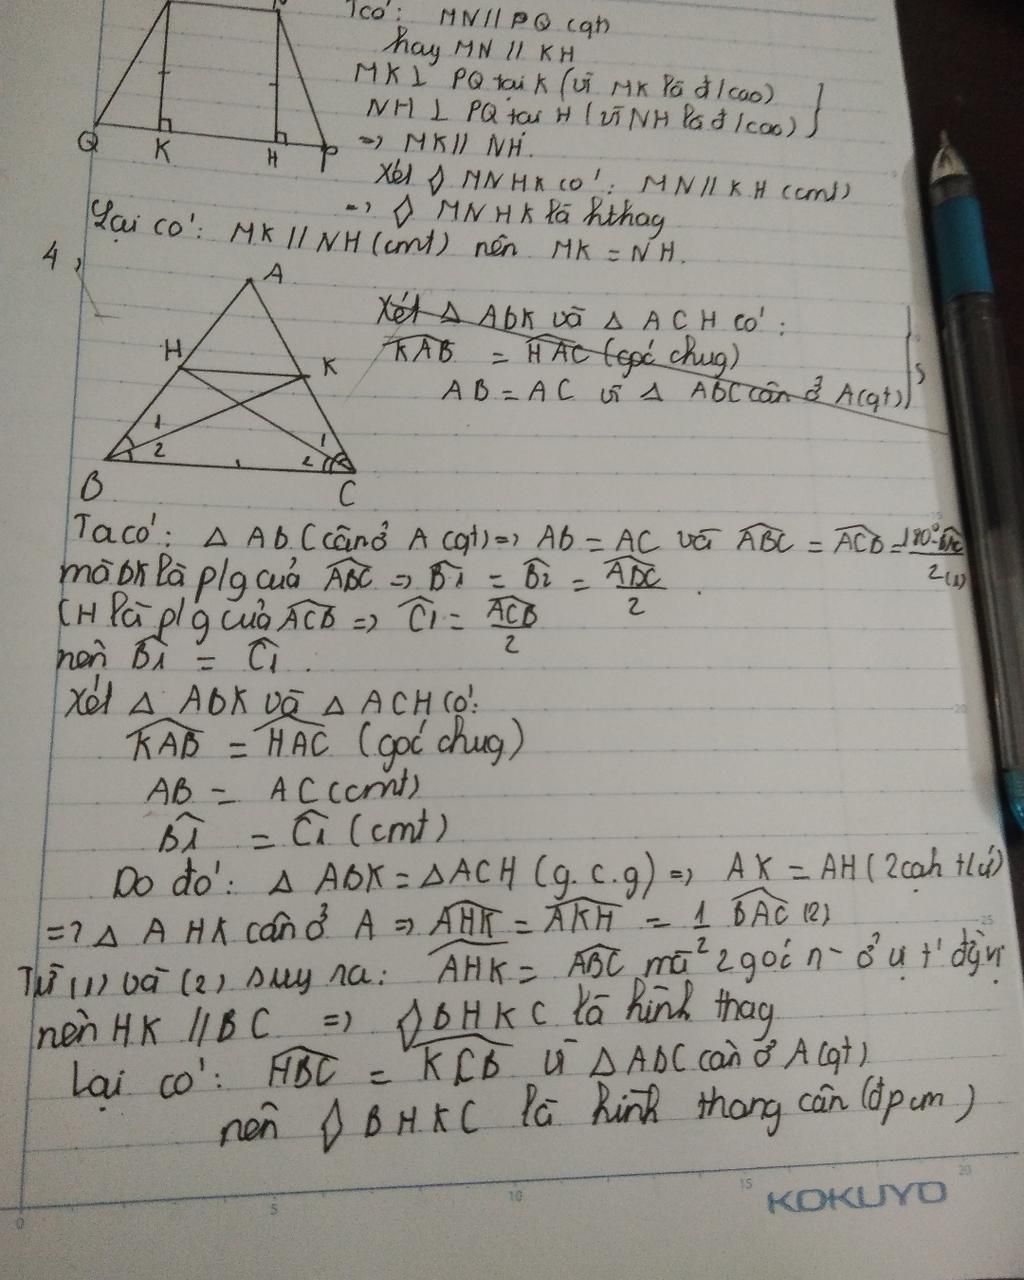 Tcó: MN // PQ (gt)
hay MN // KH
MK ⊥ PQ tại K (vì MK là đ/cao)
NH ⊥ PQ tại H (vì NH là đ/cao)
=> MK // NH.
Q K H P
Xét ◊ MNHK có: MN // KH (cmt)
=> ◊ MNHK là hthag
Lại có: MK // NH (cmt) nên MK = NH.
4,
A
Xét Δ ABK và Δ ACH có:
H K
KAB = HAC (góc chug)
AB = AC vì Δ ABC cân ở A (gt)
1 2 1 2
B C
Ta có: Δ ABC cân ở A (gt) => AB = AC và ABC = ACB = 180° - BAC / 2 (1)
mà BK là p/g của ABC => B1 = B2 = ABC / 2
CH là p/g của ACB => C1 = ACB / 2
nên B1 = C1.
Xét Δ ABK và Δ ACH có:
KAB = HAC (góc chug)
AB = AC (cmt)
B1 = C1 (cmt)
Do đó: Δ ABK = Δ ACH (g.c.g) => AK = AH (2 cạh t/ứ)
=> Δ AHK cân ở A => AHK = AKH = 1/2 BAC (2)
Từ (1) và (2) suy ra: AHK = ABC mà 2 góc n- ở vị t' đ vị
nên HK // BC => ◊ BHKC là hình thag
Lại có: HBC = KCB vì Δ ABC cân ở A (gt)
nên ◊ BHKC là hình thang cân (đpcm)
0 5 10 15 20
KOKUYO